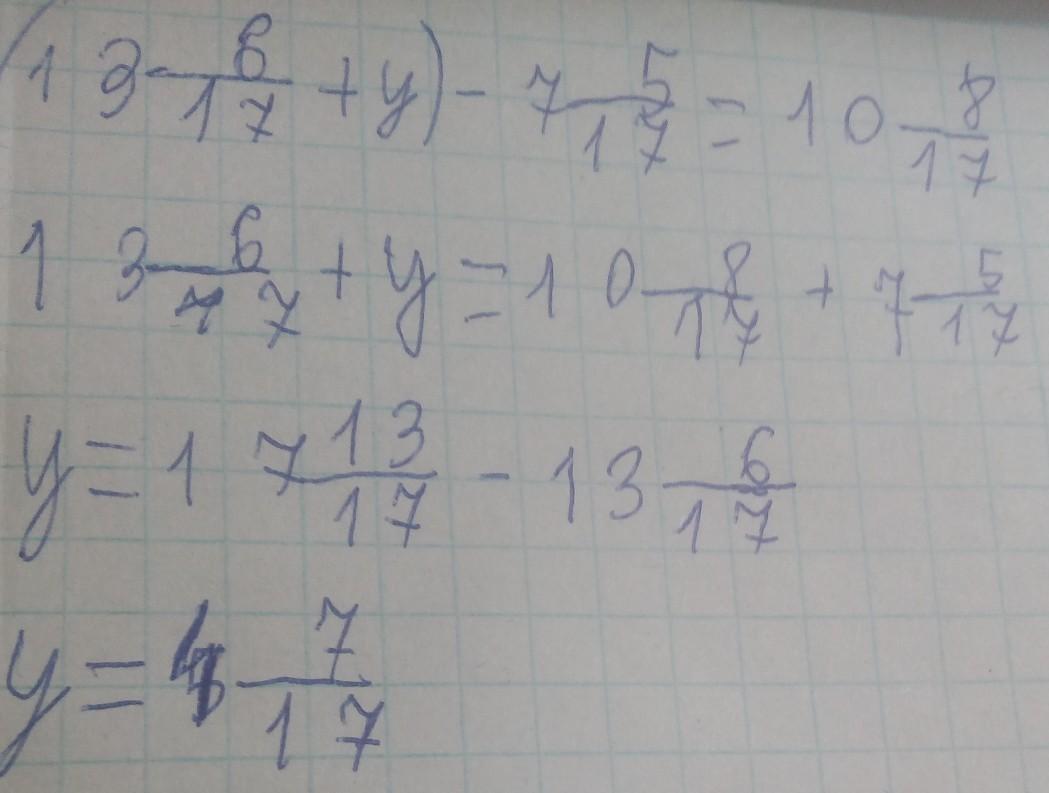 (13 6/17 + y) - 7 5/17 = 10 8/17
13 6/17 + y = 10 8/17 + 7 5/17
y = 17 13/17 - 13 6/17
y = 4 7/17